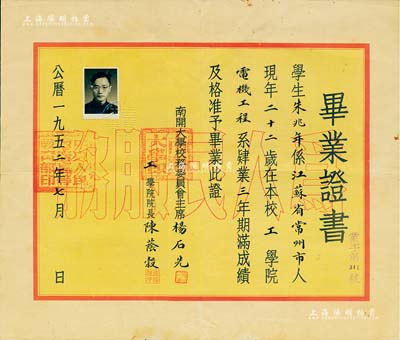 上海阳明拍卖
畢業證書
學生朱兆年係江蘇省常州市人
現年二十二歲在本校工學院
電機工程系肄業三年期滿成績
及格准予畢業此證
南開大學校務委員會主席楊石先
工學院院長陳蔭穀
公曆一九五二年七月 日
為人民服務
上海阳明拍卖